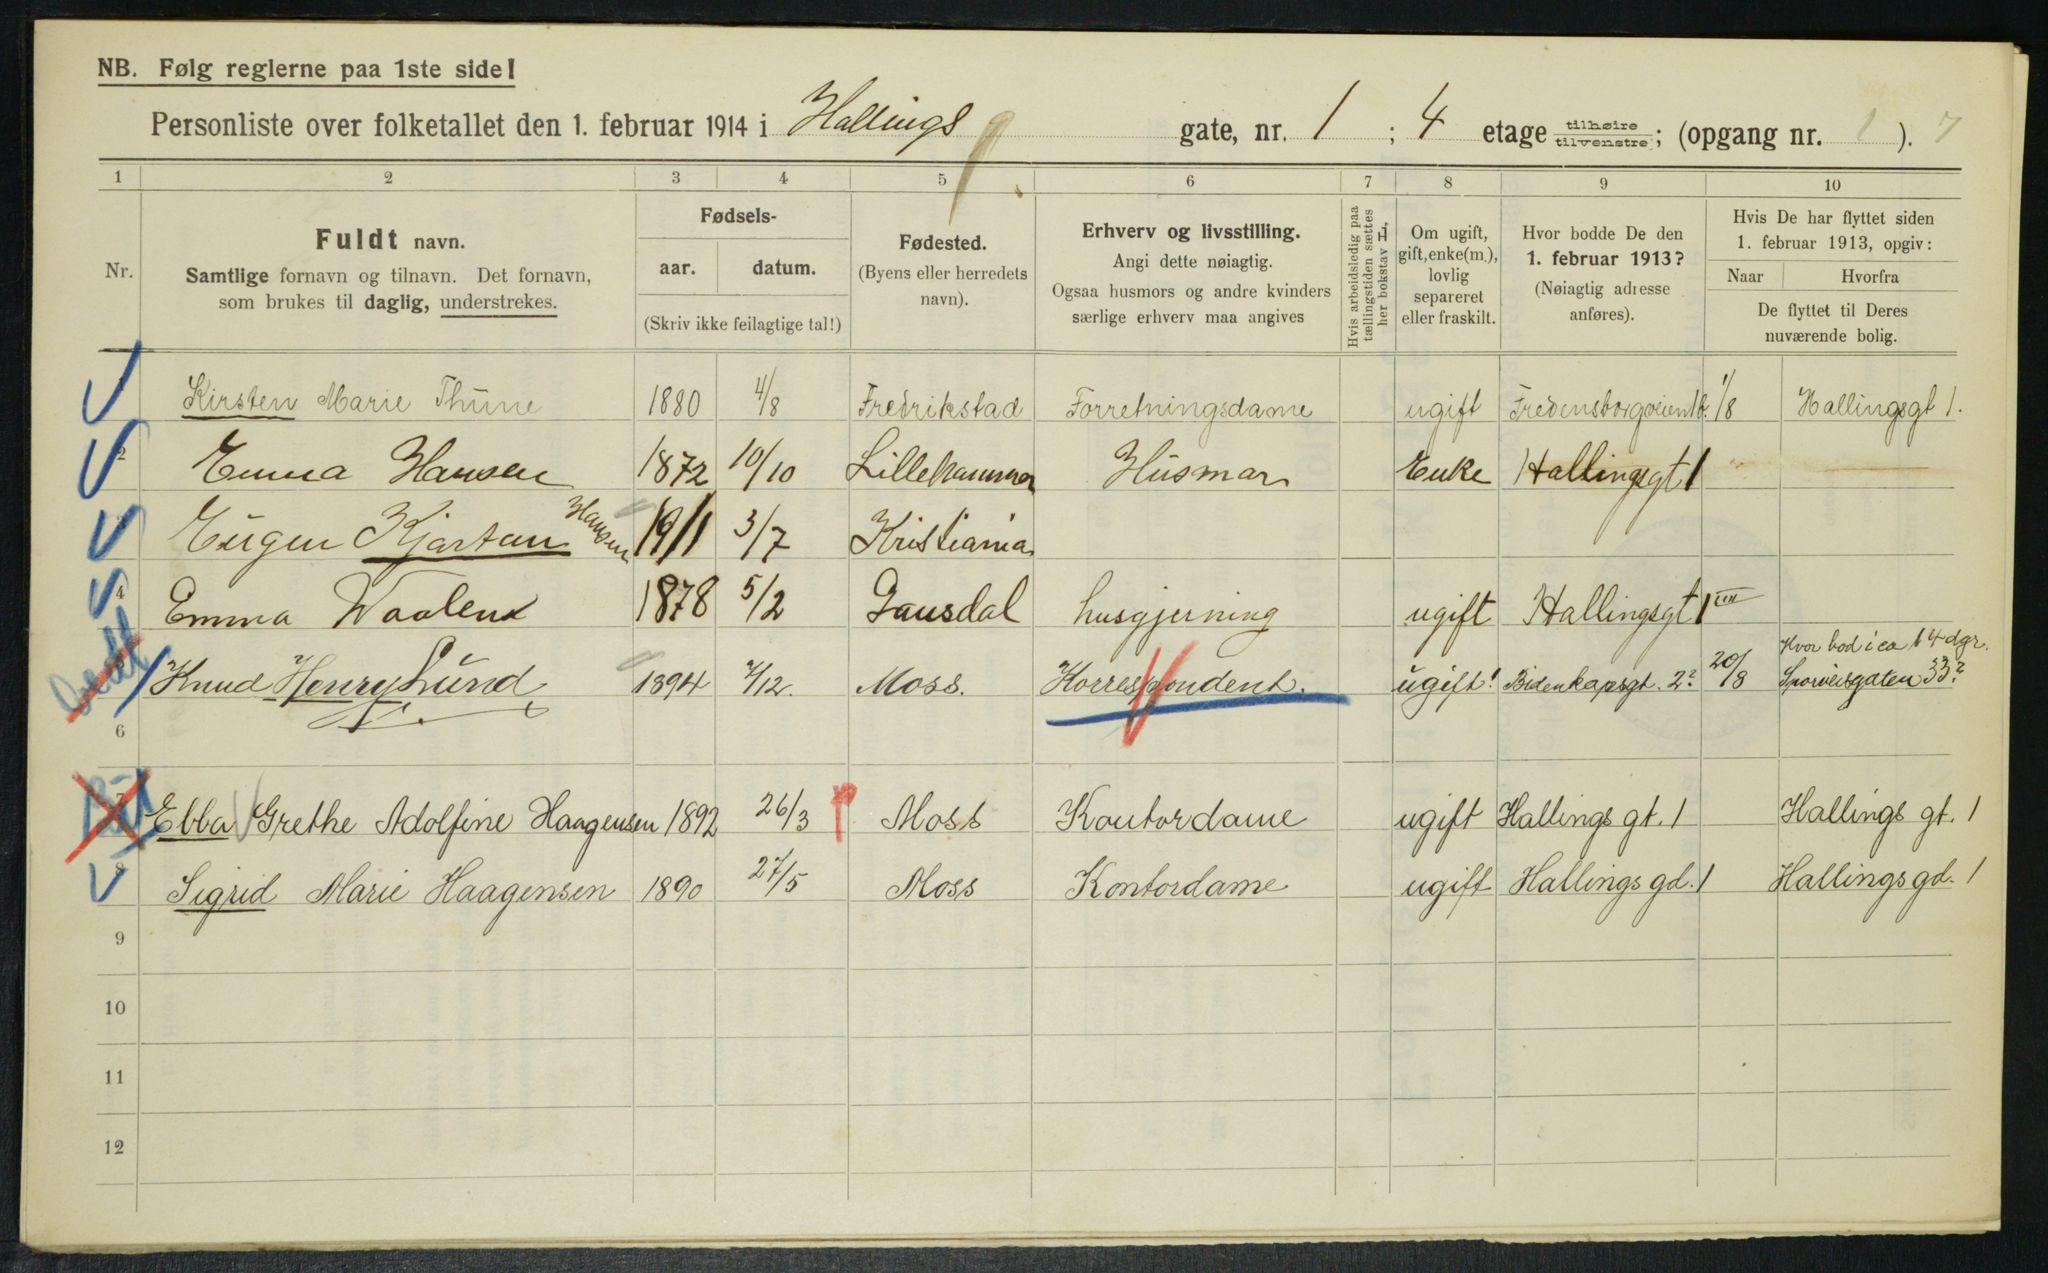 NB. Følg reglerne paa 1ste side!
Personliste over folketallet den 1. februar 1914 i Hallings gate, nr. 1 ; 4 etage tilhøire tilvenstre; (opgang nr. 1 ). 7
1 2 3 4 5 6 7 8 9 10
Nr.
Fuldt navn.
Samtlige fornavn og tilnavn. Det fornavn,
som brukes til daglig, understrekes.
Fødsels-
aar. datum.
(Skriv ikke feilagtige tal!)
Fødested.
(Byens eller herredets
navn).
Erhverv og livsstilling.
Angi dette nøiagtig.
Ogsaa husmors og andre kvinders
særlige erhverv maa angives
Hvis arbeidsledig paa
tællingstiden sættes
her bokstav L.
Om ugift,
gift, enke(m.),
lovlig
separeret
eller fraskilt.
Hvor bodde De den
1. februar 1913?
(Nøiagtig adresse
anføres).
Hvis De har flyttet siden
1. februar 1913, opgiv:
Naar Hvorfra
De flyttet til Deres
nuværende bolig.
1 Kirsten Marie Thune 1880 4/8 Fredrikstad Forretningsdame ugift Fredensborgveien 1/8 Hallingsgt 1.
2 Emma Hansen 1872 10/10 Lillehammer Husmor Enke Hallingsgt 1
3 Eugen Kjartan Hansen 1911 3/7 Kristiania
4 Emma Waalen 1878 5/2 Gausdal husgjerning ugift Hallingsgt 1 III
5 Knud Henry Lund 1894 7/12. Moss. Korrespondent. ugift! Bidenkapsgt. 2? 20/8 Hvor bod i ca 14 dgr.
Sporveisgaten 33?
6
7 Ebba Grethe Adolfine Haagensen 1892 26/3 Moss Kontordame ugift Hallings gt. 1 Hallings gt. 1
8 Sigrid Marie Haagensen 1890 27/5 Moss Kontordame ugift Hallings gd. 1 Hallings gd. 1
9
10
11
12